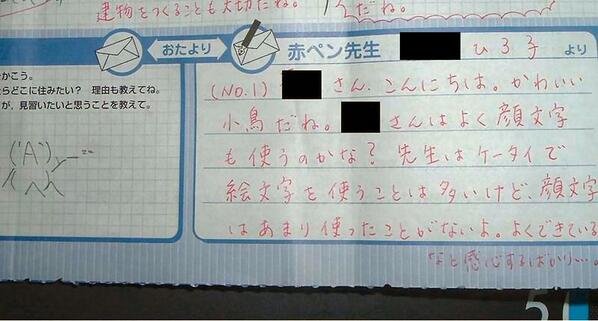 建物をつくることも大切だね。
だね。
おたより
赤ペン先生
ひろ子
より
かこう。
らどこに住みたい? 理由も教えてね。
が、見習いたいと思うことを教えて。
('A')
(No.1)
さん、こんにちは。かわいい
小鳥だね。
さんはよく顔文字
も使うのかな? 先生はケータイで
絵文字を使うことは多いけど、顔文字
はあまり使ったことがないよ。よくできている
なと感心するばかり…。